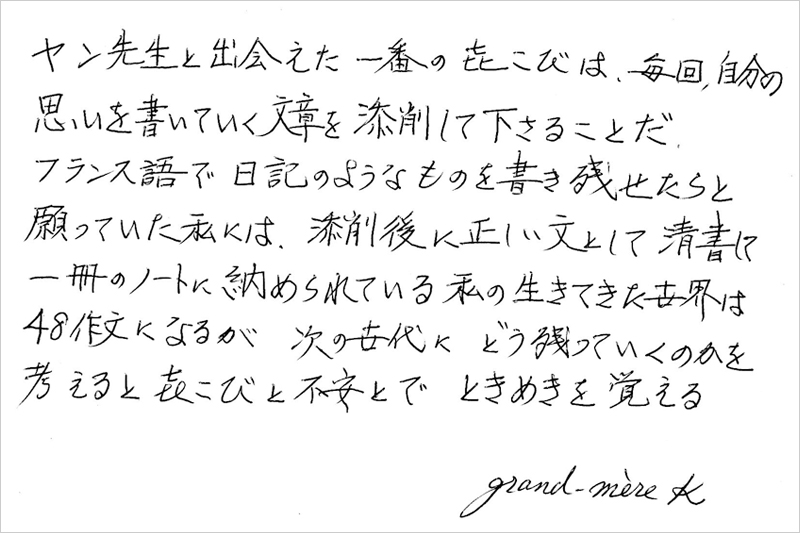 ヤン先生と出会えた一番の㐂こびは、毎回、自分の
思いを書いていく文章を添削して下さることだ、
フランス語で日記のようなものを書き残せたらと
願っていた私には、添削後に正しい文として清書に
一冊のノートに納められている私の生きてきた世界は
48作文になるが 次の世代に どう残っていくのかを
考えると㐂こびと不安とで ときめきを覚える
grand-mère K